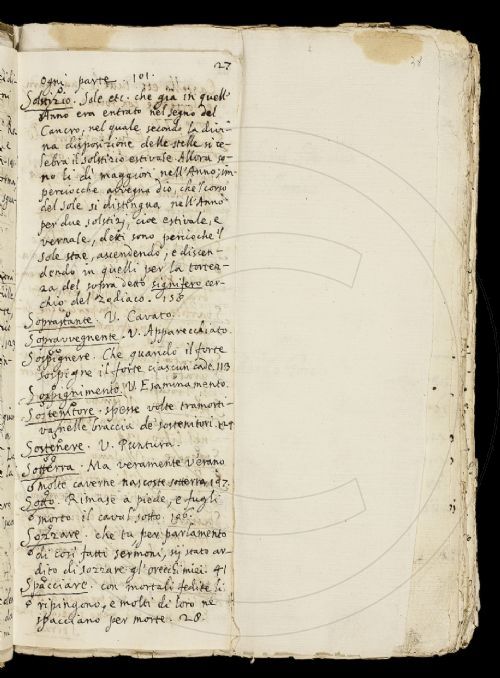 27
38
ogni parte. 101.
Solstizio. Sole etc. che già in quell'
Anno era entrato nel segno del
Cancro, nel quale secondo la divi-
na disposizione delle stelle si ce-
lebra il solstizio estivale. Allora so-
no li dì maggiori nell'Anno; im-
perciocche avvegna dio, che'l corso
del sole si distingua nell'Anno
per due solstizj, cioè estivale, e
vernale, detti sono percioche 'l
sole stae, ascendendo, e discen-
dendo in quelli per la tortez-
za del sopra detto signifero cer-
chio del Zodiaco. 156
Soprastante. V. Cavato.
Sopravvegnente. V. Apparecchiato.
Sospignere. Che quando il forte
sospigne il forte ciascun cade. 113
Sospignimento. V. Esaminamento.
Sostenitore. spesse volte tramorti-
va nelle braccia de' sostenitori. 129
Sostenere. V. Puntura.
Sotterra. Ma veramente v'erano
molte caverne nascoste sotterra. 197.
Sotto. Rimase a piede, e fugli
morto il caval sotto. 196.
Sozzare. che tu per parlamento
di così fatti sermoni, sij stato ar-
dito di sozzare gl'orecchi miei. 41
Spacciare. con mortali fedite li
ripingono, e molti di loro ne
spacciano per morte. 28.